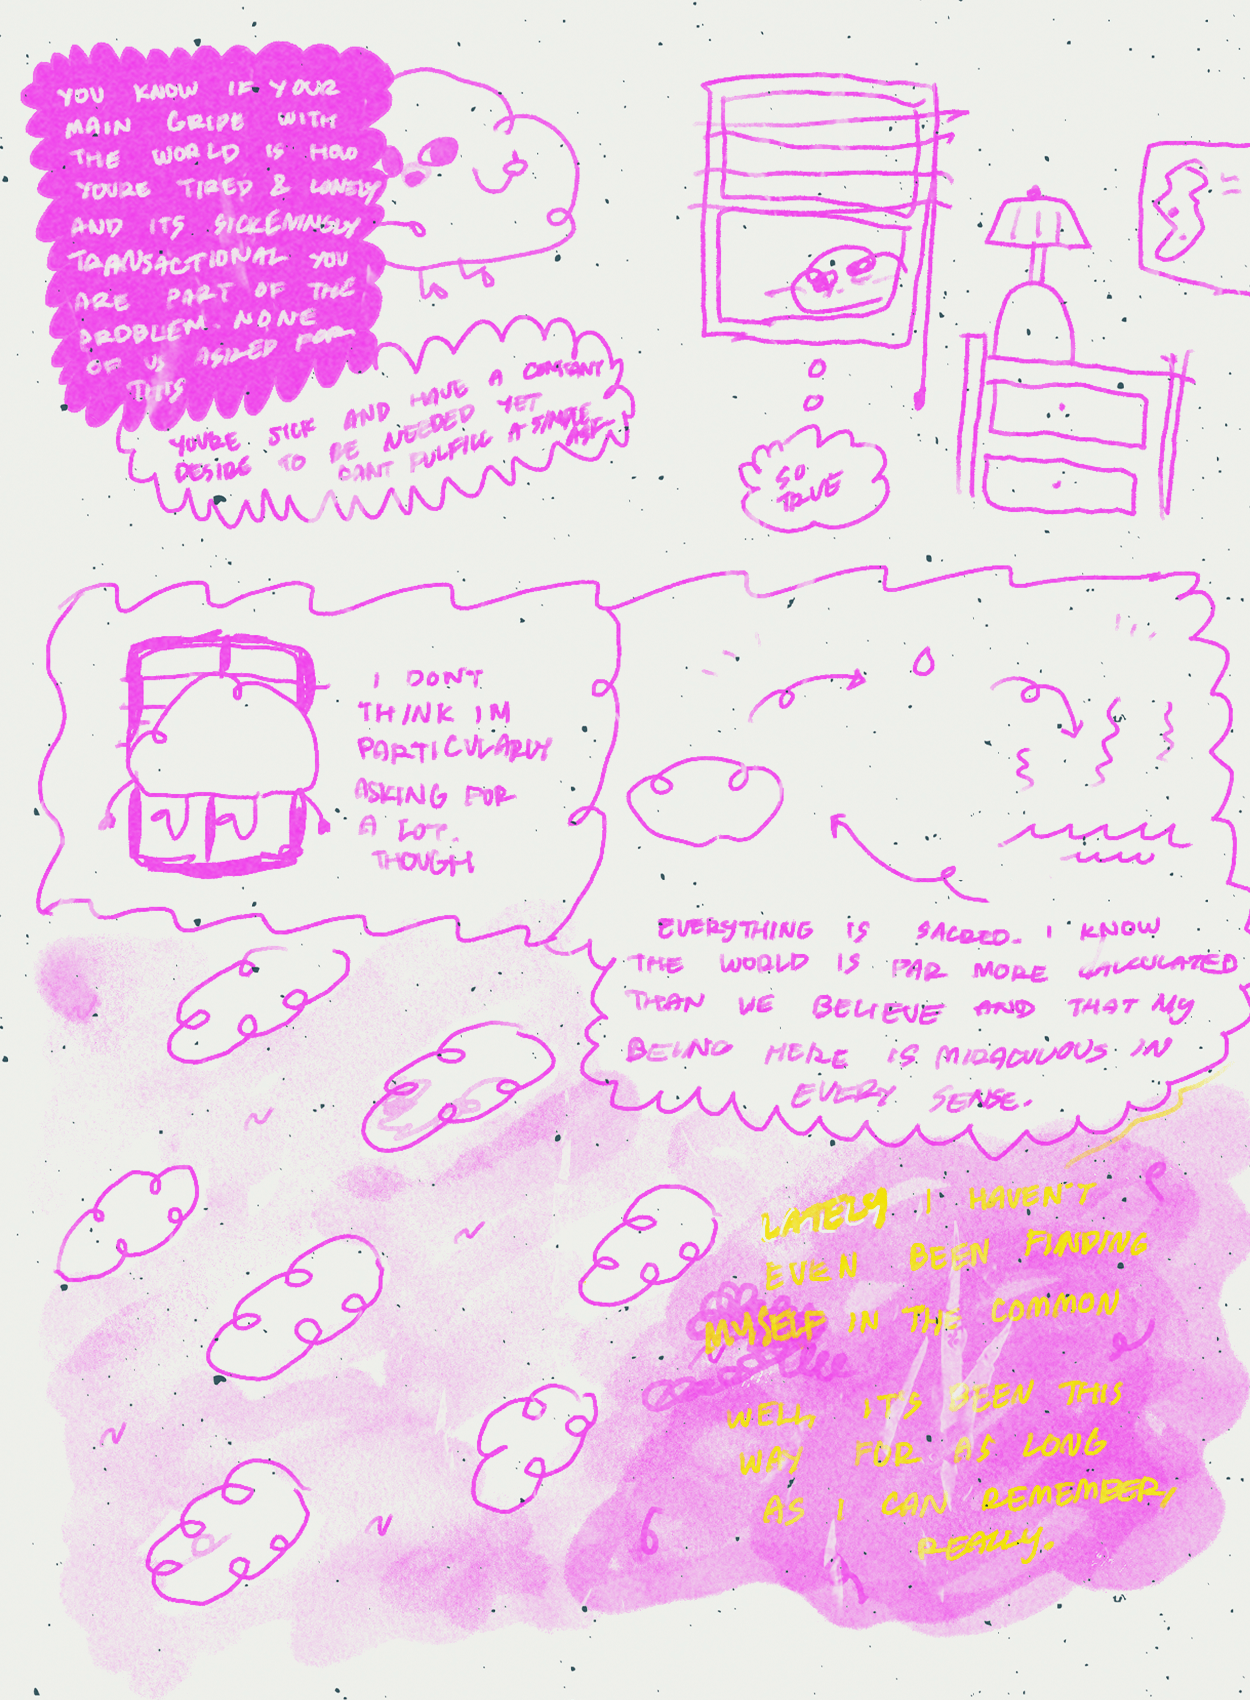 YOU KNOW IF YOUR
MAIN GRIPE WITH
THE WORLD IS HOW
YOURE TIRED & LONELY
AND ITS SICKENINGLY
TRANSACTIONAL YOU
ARE PART OF THE
PROBLEM. NONE
OF US ASKED FOR
THIS
YOURE SICK AND HAVE A CONSTANT
DESIRE TO BE NEEDED YET
CANT FULFILL A SIMPLE
ASK
SO
TRUE
I DONT
THINK IM
PARTICULARLY
ASKING FOR
A LOT.
THOUGH
EVERYTHING IS SACRED. I KNOW
THE WORLD IS FAR MORE CALCULATED
THAN WE BELIEVE AND THAT MY
BEING HERE IS MIRACULOUS IN
EVERY SENSE.
LATELY I HAVEN'T
EVEN BEEN FINDING
MYSELF IN THE COMMON
WELL, IT'S BEEN THIS
WAY FOR AS LONG
AS I CAN REMEMBER,
REALLY.